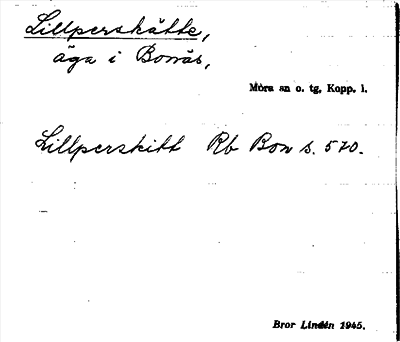 Lillperskätte,
äga i Bonäs.
Mora sn o. tg, Kopp. l.
Lillperskitt Rb Bon s. 570.
Bror Lindén 1945.